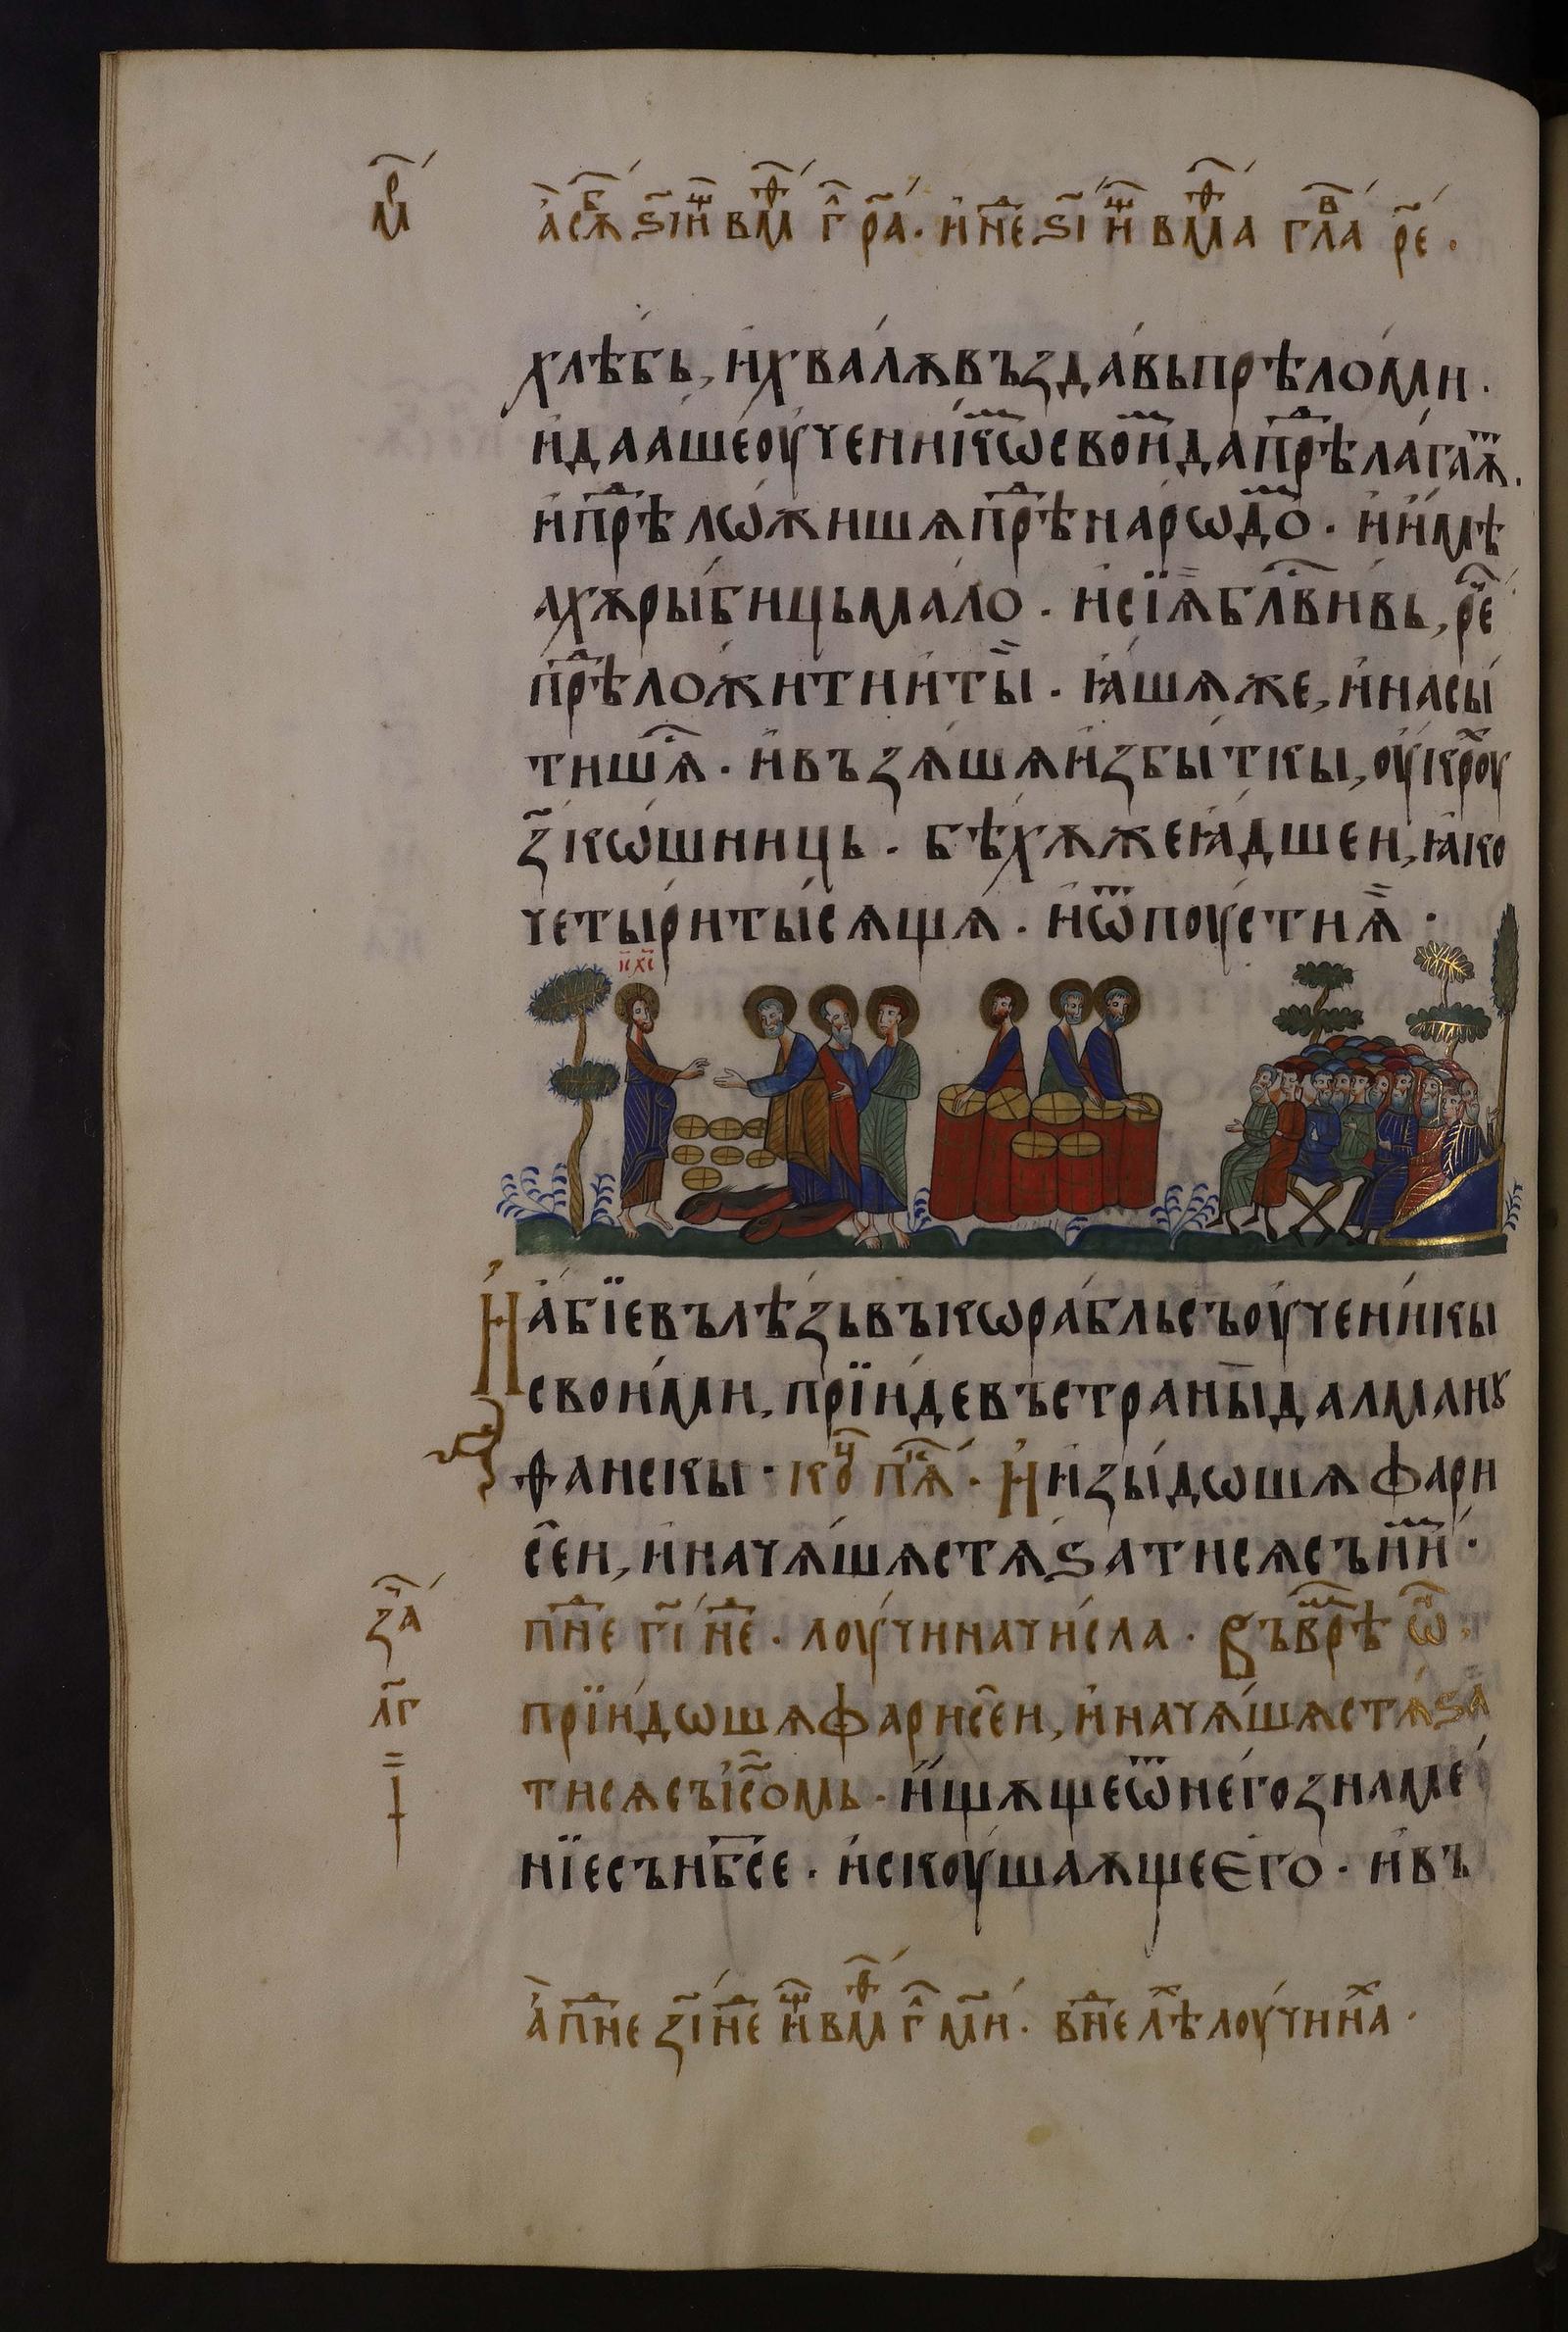 м҃р
а҆ сѫⷠ҇ ѕ҃і нⷳ҇ в м҃ⷴ г҃ л рⷱ҇а · и҆ неⷣ҇ ѕ҃і нⷳ҇ в м҃ⷴа глаⷡ рⷱ҇е ·
хлѣ́бь, и҆ хва́лѫ въздáвь прѣломи ·
и҆ даáше оу҆ченнікѡⷨ свои́ⷨ да прѣⷣлáгаѫⷮ ·
и҆ прѣⷣлѡ́жишѧ прѣⷣ нарѡ́доⷨ · и҆ и҆мѣ
ахѫ ры́бицьма́ло · и҆ сїѧ̀ блⷭ҇ви́вь, рⷱ҇е
прѣⷣло́жити и҆ ты̀ · ꙗ҆́шѧ же, и҆ насы́
тишѧⷭ҇ · и҆ възѧ́шѧ и҆збы́ткы, оу҆кроу
з҃ кѡ́шниць · бѣ́хѫ же ꙗ҆́дшеи, ꙗ҆́ко
четы́ри ты́сѧщѧ · и҆ ѿпоу́сти ѧ̀ ·
іс҃ хс҃
И҆ а́бїе вълѣ́зь въ кѡра́бль съ оу҆чени́кы
свои́ми, прїи́де въ страны̀ далманꙋ
фански · коⷰ҇ пѧⷦ҇ · И҆ и҆зы́дѡшѧ фари
се́и, и҆ начѧ́шѧ стѧѕати сѧ съ ни́ⷨ ·
пⷩ҇еⷣ г҃і неⷣ · лоу́чи начи́сла · Въ врѣⷨ ѡⷩ҇
прїи́дѡшѧ фарисе́и, и҆ начѧ́шѧ стѧѕа́
ти сѧ съ іс҃омь · и҆́щѫще ѿ него́ зна́ме
нїе съ нб҃се · и҆скоу́шаѫще є҆го · и҆ въ
заⷱ҇
л҃г
а҆ пⷩ҇еⷣ з҃і неⷣ нⷳ҇ в м҃ⷴ г҃ л м҃и · в неⷣ лѣⷯ лоу́чи наⷯ ·